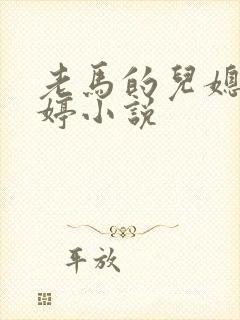 老馬的兒媳
婷小說
平放